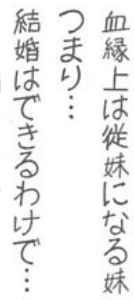 血縁上は従妹になる妹
つまり…
結婚はできるわけで…